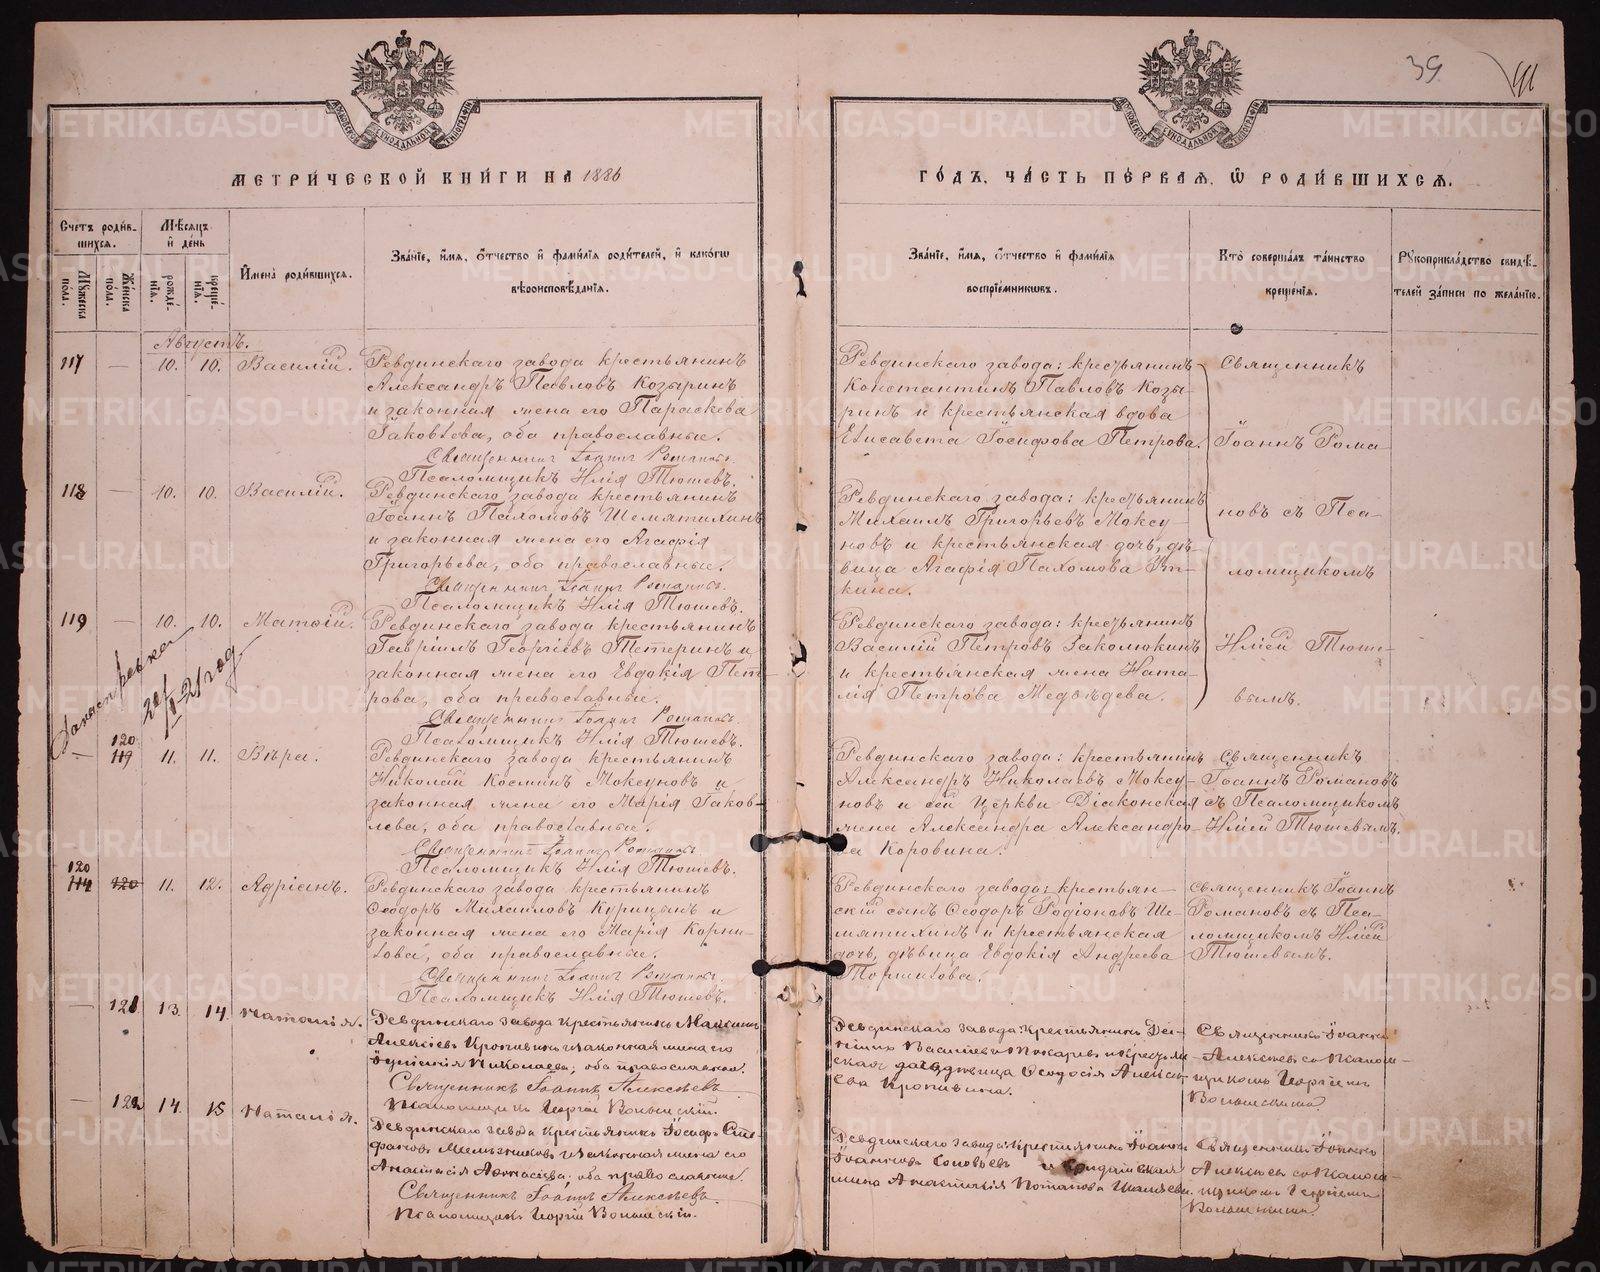 39
МЕТРИЧЕСКОЙ КНИГИ НА 1886
ГОДЪ, ЧАСТЬ ПЕРВАЯ, Ѡ РОДИВШИХСЯ.
Счетъ родившихся.
Мужеска пола.
Женска пола.
Мѣсяцъ и день
рожденія.
крещенія.
Имена родившихся.
Званіе, имя, отчество и фамилія родителей, и какогѡ
вѣроисповѣданія.
Званіе, имя, отчество и фамилія
воспріемниковъ.
Кто совершалъ таинство
крещенія.
Рукоприкладство свидѣ-
телей записи по желанію.
Августъ.
117 — 10. 10. Василій.
Ревдинскаго завода крестьянинъ
Александръ Павловъ Козыринъ
и законная жена его Параскева
Іаковлева, оба православные.
Священникъ Іоаннъ Романовъ.
Псаломщикъ Илія Тюшевъ.
Ревдинскаго завода: крестьянинъ
Константинъ Павловъ Козы-
ринъ и крестьянская вдова
Елисавета Іосифова Петрова.
Священникъ
Іоаннъ Рома-
новъ съ Пса-
ломщикомъ
Иліей Тюше-
вымъ.
118 — 10. 10. Василій.
Ревдинскаго завода крестьянинъ
Іоаннъ Пахомовъ Шемятихинъ
и законная жена его Агафія
Григорьева, оба православные.
Священникъ Іоаннъ Романовъ.
Псаломщикъ Илія Тюшевъ.
Ревдинскаго завода: крестьянинъ
Михаилъ Григорьевъ Моксу-
новъ и крестьянская дочь, дѣ-
вица Агафія Пахомова
кина.
119 — 10. 10. Матѳій.
Ревдинскаго завода крестьянинъ
Гавріилъ Георгіевъ Тетеринъ и
законная жена его Евдокія Пет-
рова, оба православные.
Священникъ Іоаннъ Романовъ.
Псаломщикъ Илія Тюшевъ.
Ревдинскаго завода: крестьянинъ
Василій Петровъ Заколюкинъ
и крестьянская жена Ната-
лія Петрова Медвѣдева.
— 120 119 11. 11. Вѣра.
Ревдинскаго завода крестьянинъ
Николай Косминъ Моксуновъ и
законная жена его Марія Іаков-
лева, оба православные.
Священникъ Іоаннъ Романовъ.
Псаломщикъ Илія Тюшевъ.
Ревдинскаго завода: крестьянинъ
Александръ Николаевъ Моксу-
новъ и сей Церкви Діаконская
жена Александра Александро-
ва Коровина.
Священникъ
Іоаннъ Романовъ
съ Псаломщикомъ
Иліей Тюшевымъ.
120 120 11. 12. Адріанъ.
Ревдинскаго завода крестьянинъ
Ѳеодоръ Михаиловъ Курицынъ и
законная жена его Марія Корни-
лова, оба православные.
Священникъ Іоаннъ Романовъ.
Псаломщикъ Илія Тюшевъ.
Ревдинскаго завода: крестьян-
скій сынъ Ѳеодоръ Родіоновъ Ше-
мятихинъ и крестьянская
дочь, дѣвица Евдокія Андреева
Священникъ Іоаннъ
Романовъ съ Пса-
ломщикомъ Иліей
Тюшевымъ.
— 121 13. 14. Наталія.
Ревдинскаго завода крестьянинъ Максимъ
Алексѣевъ Кропивинъ и законная жена его
Николаева, оба православные.
Священникъ Іоаннъ Алексѣевъ
Псаломщикъ Георгій Волынскій.
Ревдинскаго завода: крестьянинъ
Васильевъ Токаревъ и крестьян-
ская дѣвица Ѳеодосія Алексѣ-
ева Кропивина.
Священникъ Іоаннъ
Алексѣевъ со Псалом-
щикомъ Георгіемъ
Волынскимъ.
— 122 14. 15 Наталія.
Ревдинскаго завода крестьянинъ Іосифъ Сте-
фановъ Мельзниковъ и законная жена его
Анастасія Аѳанасіева, оба православные.
Священникъ Іоаннъ Алексѣевъ.
Псаломщикъ Георгій Волынскій.
Ревдинскаго завода: крестьянинъ Іоаннъ
Іоанновъ Соловьевъ и солдатская
жена Потапова
Священникъ Іоаннъ
Алексѣевъ со Псалом-
щикомъ Георгіемъ
Волынскимъ.